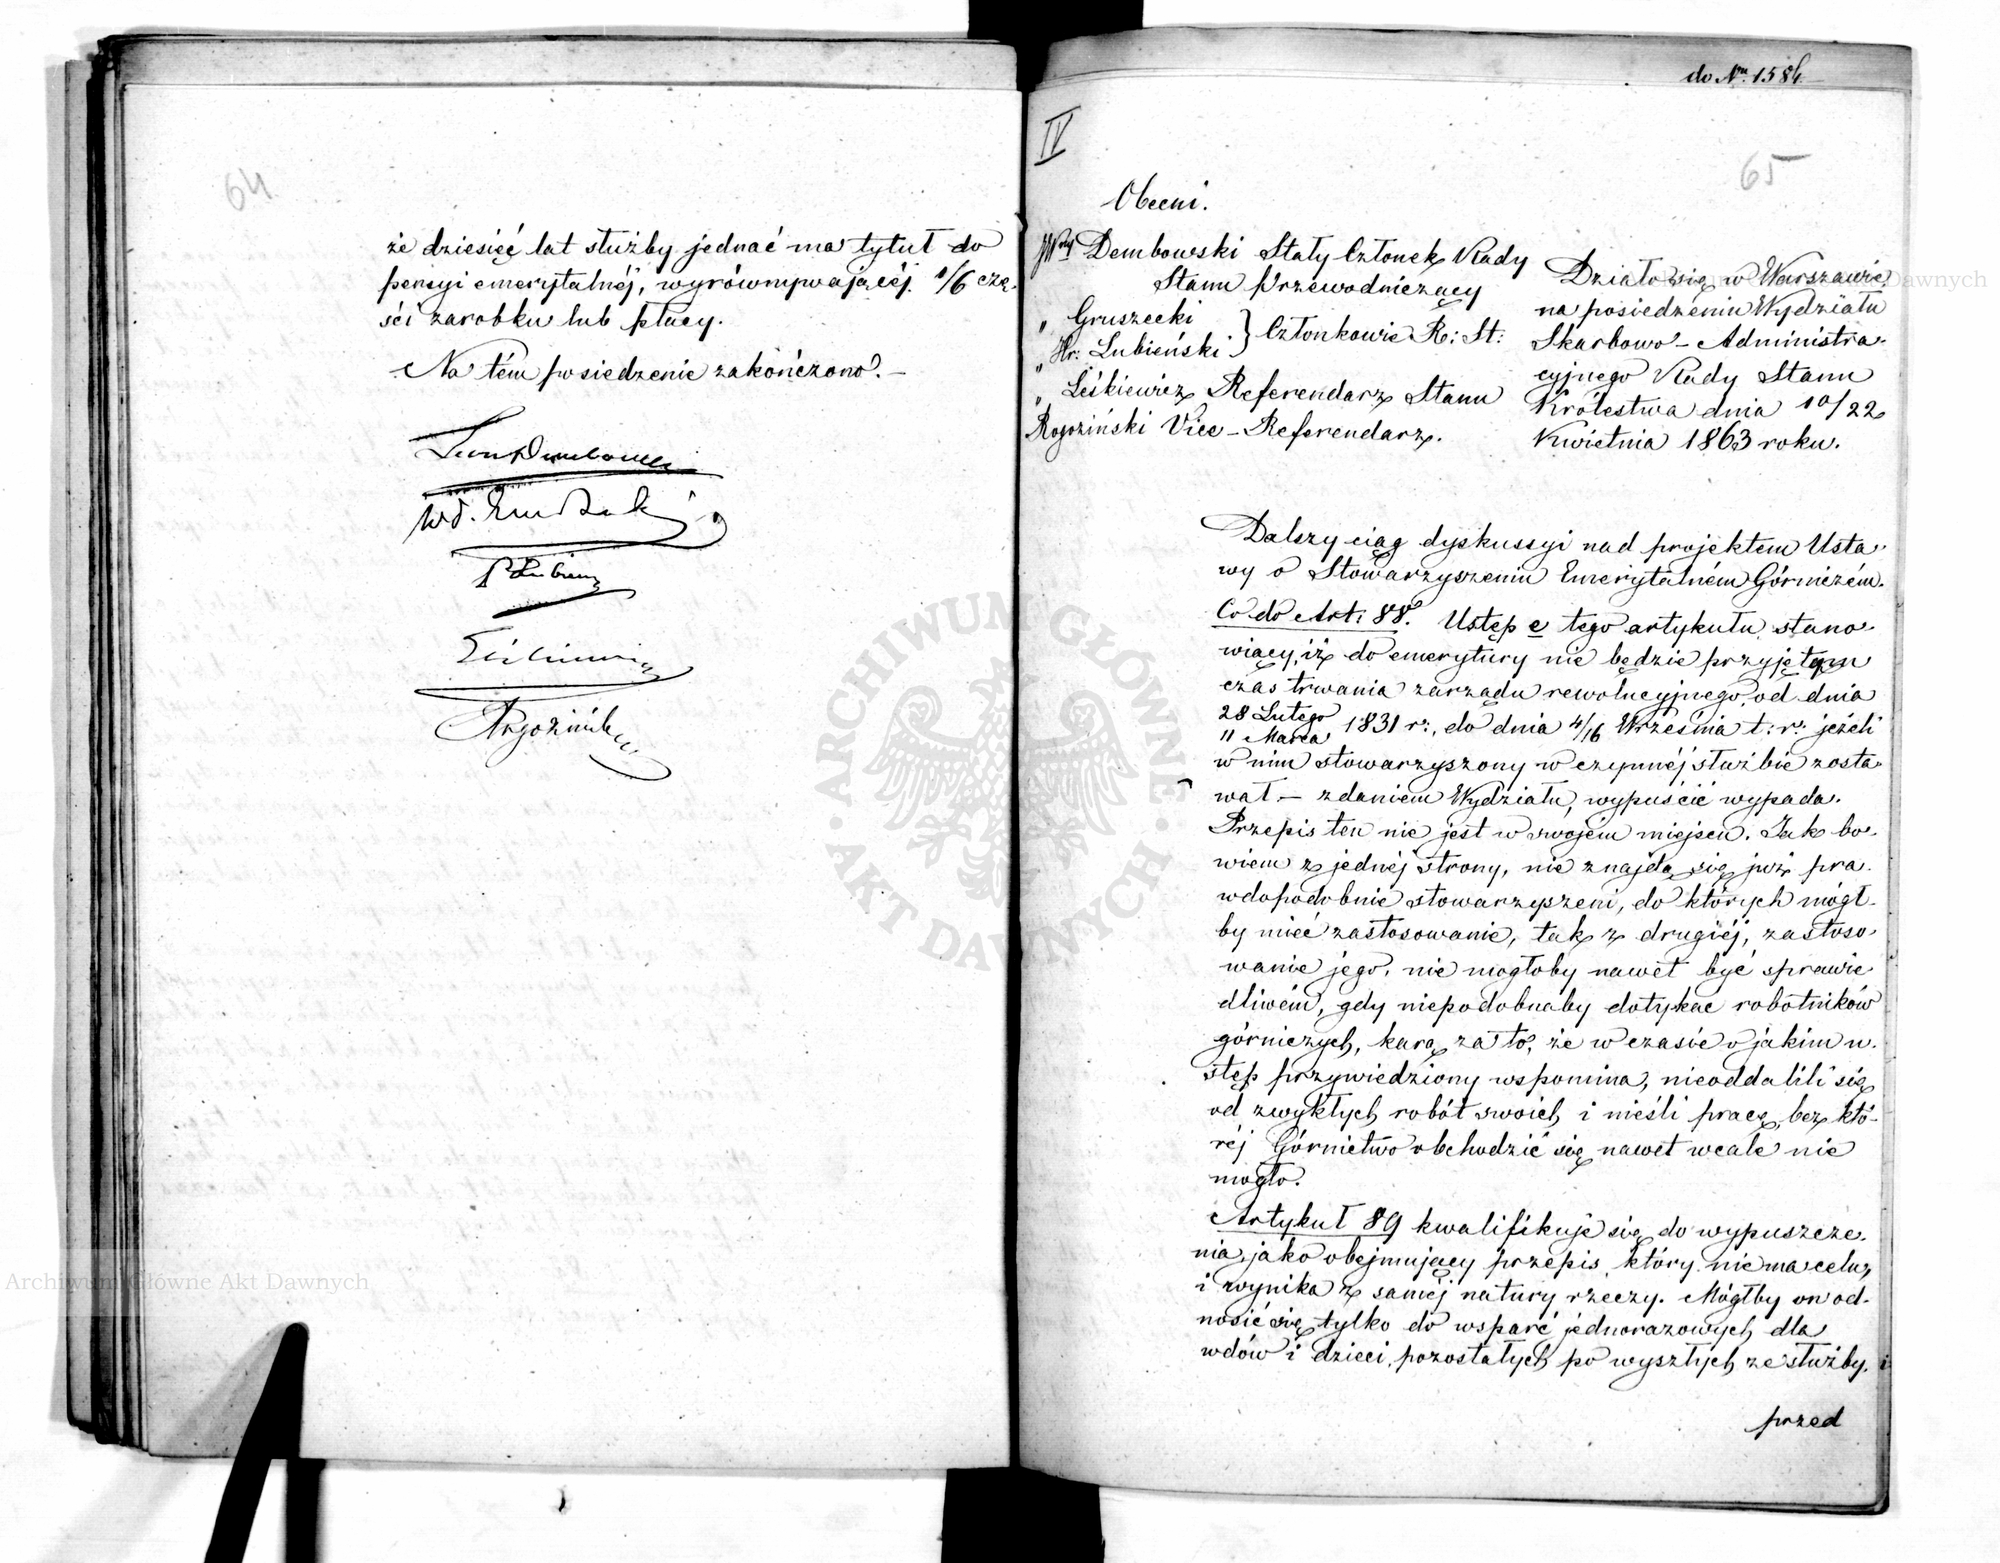 64
że dziesięć lat służby jednać ma tytuł do
pensyi emerytalnéj, wyrównywającéj 1/6 czę-
ści zarobku lub płacy.
Na tém posiedzenie zakończono. –
Leon Dembowski
Wł.
Łubieński
Leśkiewicz
Rogoziński
do Nru 1584
IV
65
Obecni.
JWny Dembowski Stały Członek Rady
Stanu Przewodniczący
" Gruszecki
" Hr: Łubieński } Członkowie R: St:
" Leśkiewicz Referendarz Stanu
Rogoziński Vice-Referendarz.
Działo się w Warszawie
na posiedzeniu Wydziału
Skarbowo-Administra-
cyjnego Rady Stanu
Królestwa dnia 10/22
Kwietnia 1863 roku.
Dalszy ciąg dyskussyi nad projektem Usta-
wy o Stowarzyszeniu Emerytalném Górniczém.
Co do Art: 88. Ustęp e tego artykułu stano-
wiący, iż do emerytury nie będzie przyjętym
czas trwania zarządu rewolucyjnego od dnia
28 Lutego/11 Marca 1831 r:, do dnia 4/16 Września t: r: jeżeli
w nim stowarzyszony w czynnéj służbie zosta-
wał – zdaniem Wydziału, wypuścić wypada.
Przepis ten nie jest w swojem miejscu. Jak bo-
wiem z jednéj strony, nie znajdą się już pra-
wdopodobnie stowarzyszeni, do których mógł-
by mieć zastosowanie, tak z drugiéj, zastoso-
wanie jego, nie mogłoby nawet być sprawie-
dliwém, gdy niepodobnaby dotykać robotników
górniczych, karą za to, że w czasie o jakim u-
stęp przywiedziony wspomina, nieoddalili się
od zwykłych robót swoich i nieśli pracę, bez któ-
réj Górnictwo obchodzić się nawet wcale nie
mogło.
Artykuł 89 kwalifikuje się do wypuszcze-
nia, jako obejmujący przepis, który nie ma celu,
i wynika z saméj natury rzeczy. Mógłby on od-
nosić się tylko do wsparć jednorazowych dla
wdów i dzieci, pozostałych po wyszłych ze służby, i
przed
ARCHIWUM GŁÓWNE AKT DAWNYCH
Archiwum Główne Akt Dawnych
Archiwum Główne Akt Dawnych